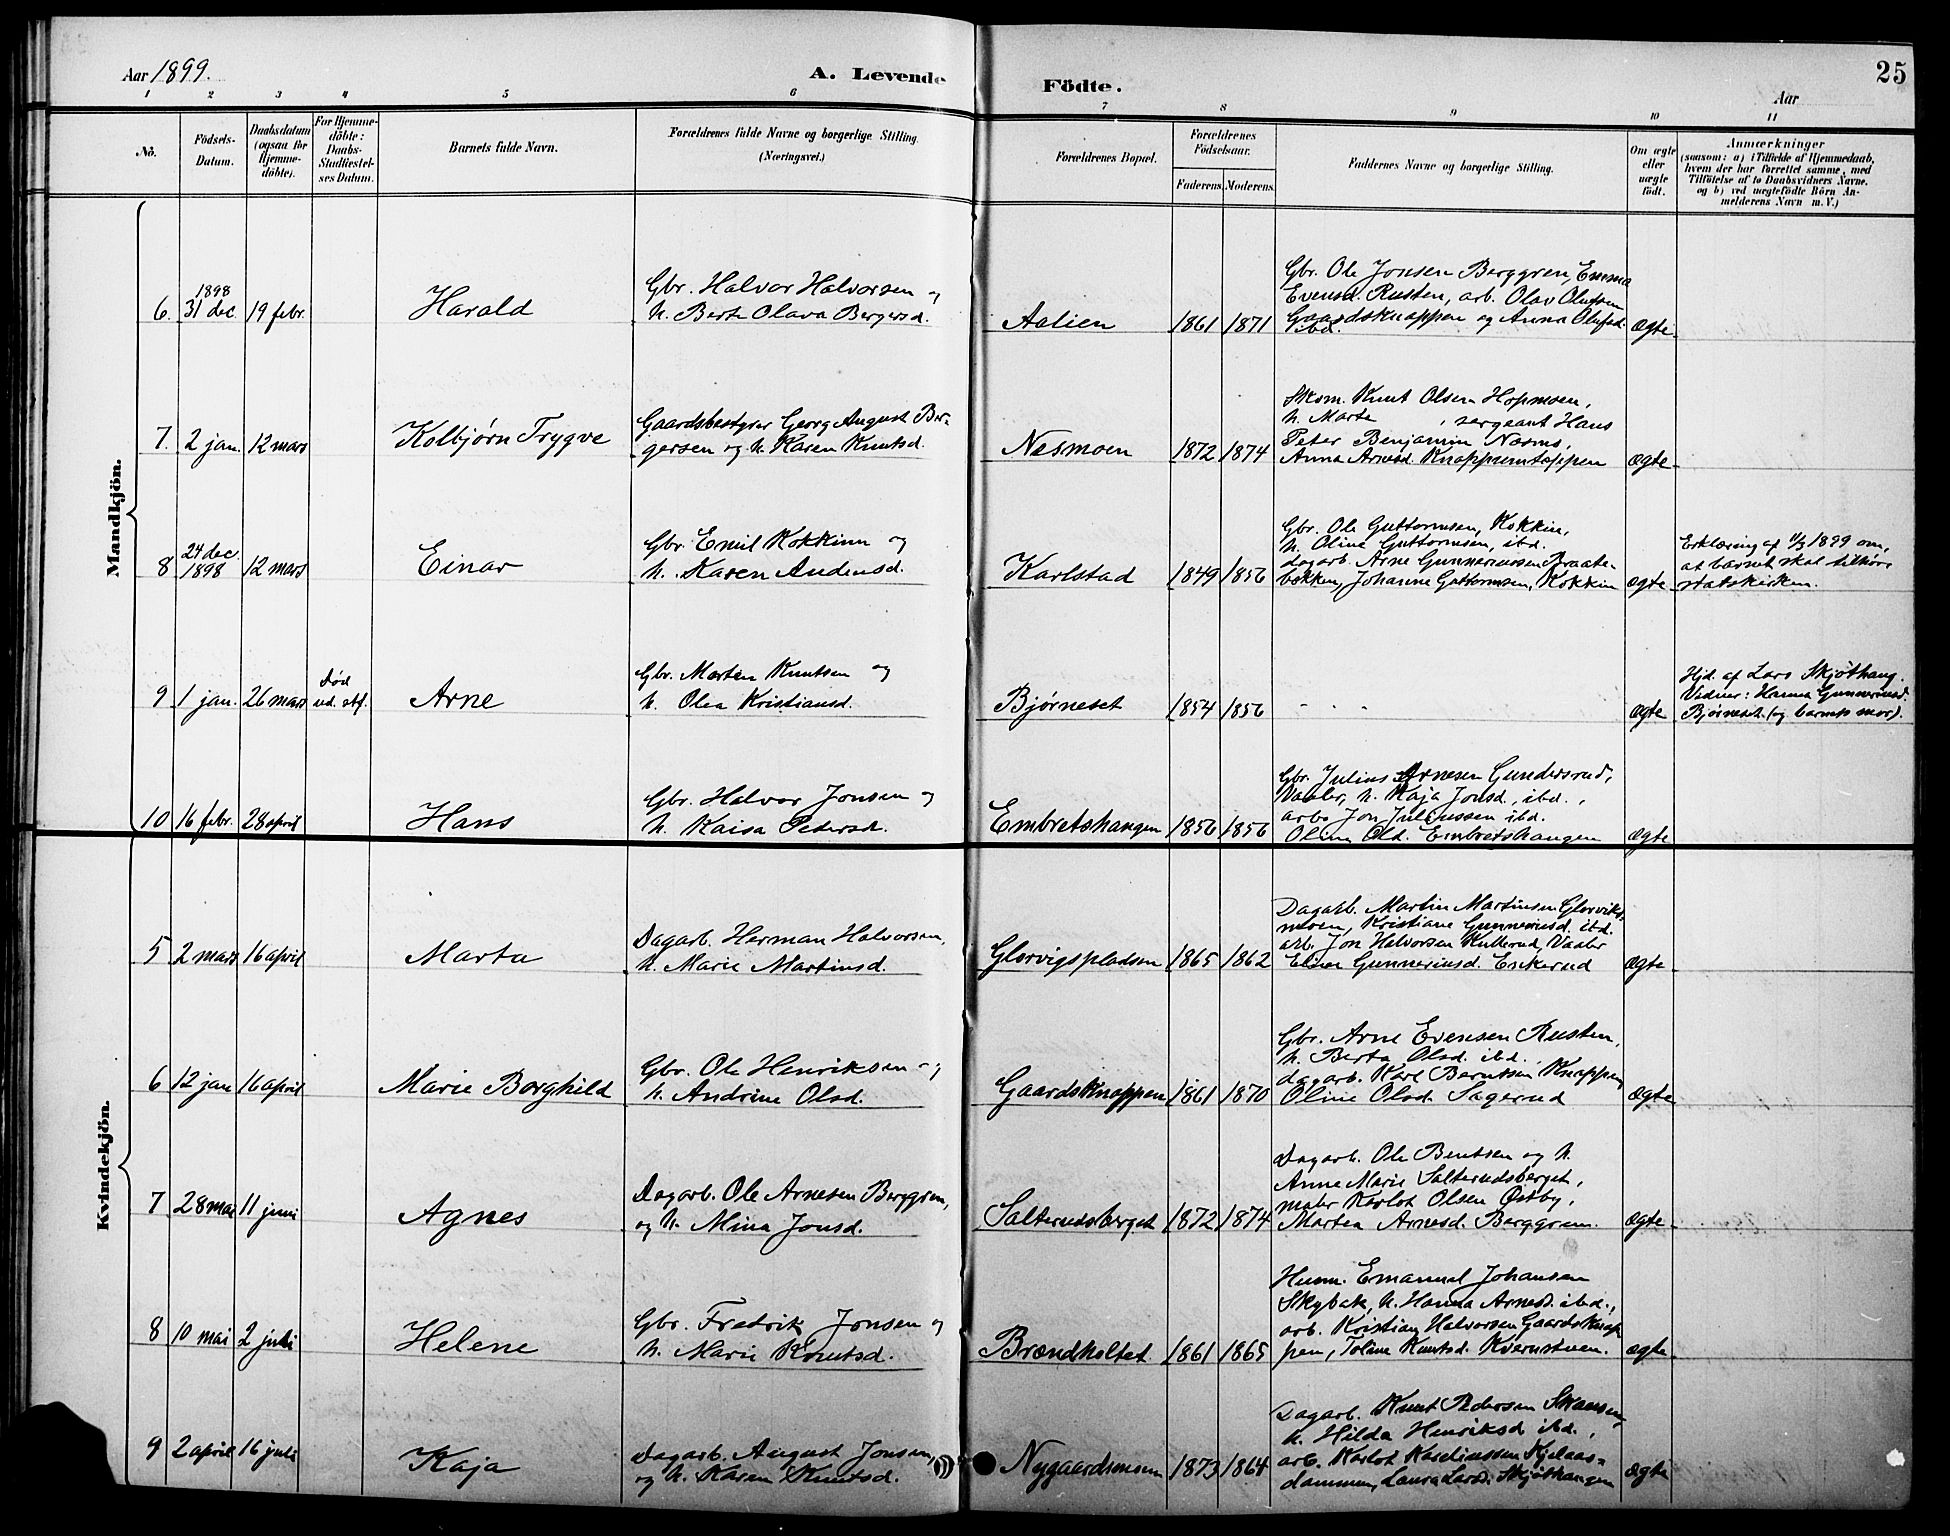 Aar 1899.
A. Levende Födte.
Aar
25
1 2 3 4 5 6 7 8 9 10 11
No.
Födsels-
Datum.
Daabsdatum
(ogsaa for
Hjemme-
döbte).
For Hjemme-
döbte:
Daabs-
Stadfæstel-
ses Datum.
Barnets fulde Navn.
Forældrenes fulde Navne og borgerlige Stilling.
(Næringsvei.)
Forældrenes Bopæl.
Forældrenes
Födselsaar.
Faderens. Moderens.
Faddernes Navne og borgerlige Stilling.
Om ægte
eller
uægte
födt.
Anmærkninger
(saasom: a) i Tilfælde af Hjemmedaab,
hvem der har forrettet samme, med
Tilföielse af to Daabsvidners Navne.
og b) ved uægtefödte Börn An-
melderens Navn m. V.)
Mandkjön.
6. 1898
31 dec. 19 febr. Harald
Gbr. Halvor Halvorsen og
h. Berte Olava Bergersd.
Aalien 1861 1871
Gbr. Ole Jonsen Berggren, Emma
Evensd. Rusten, arb. Olav Olufsen
Gaardsknappen og Anna Olufsd.
ibd.
Ægte
7. 2 jan. 12 mars Kolbjørn Trygve
Gaardsbestyrer Georg August Ber-
gersen og h. Karen Knutsd.
Nesmoen 1872 1874
Skom. Knut Olsen Hopmoen,
h. Marte , sergeant Hans
Peter Benjamin
Anna Arnesd.
Ægte
8 24 dec.
1898 12 mars Einar
Gbr. Emil Kokkinn og
h. Karen Andersd.
Karlstad 1849 1856
Gbr. Ole Guttormsen, Kokkin,
h. Oline Guttormsen, ibd.
dagarb. Arne Gunneriussen Braate-
bakken, Johanne Guttormsen, Kokkin
ægte
Erklæring af 1/3 1899 om,
at barnet skal tilhøre
statskirken.
9 1 jan. 26 mars Død
ud. stf. Arne
Gbr. Morten Knutsen og
h. Olea Kristiansd.
Bjørneset 1854 1856 - - -
ægte
Hjd. af Lars Skjøthaug.
Vidner: Hanna Gunneriusd.
Bjørneset (og barnets mor).
10 16 febr. 28 april Hans
Gbr. Halvor Jonsen og
h. Kaisa Pedersd.
Embretshaugen 1856 1856
Gbr. Julius Arnesen Gundersrud,
Vaaler, h. Kaja Jonsd., ibd.,
arb. Jon Juliussen ibd.
Oline Olsd. Embretshaugen
ægte
Kvindekjön.
5 2 mars 16 april Marta
Dagarb. Herman Halvorsen,
h. Marie Martinsd.
Glorvigspladsen 1865 1862
Dagarb. Martin Martinsen Glorviks-
moen, Kristiane Gunneriusd. ibd.
arb. Jon Halvorsen Kullerud, Vaaler
Elina Gunneriusd. Enkerud
ægte
6 12 jan 16 april Marie Borghild
Gbr. Ole Henriksen og
h. Andrine Olsd.
Gaardsknappen 1861 1870
Gbr. Arne Evensen Rusten,
h. Berta Olsd. ibd.
dagarb. Karl Berntsen Knappen,
Oline Olsd. Sagerud
ægte
7 28 mai 11 juni Agnes
Dagarb. Ole Arnesen Berggren,
og h. Mina Jonsd.
Salterudsberget 1872 1874
Dagarb. Ole Bentsen og h.
Anne Marie Salterudsberget,
maler Karlot Olsen Østby,
Martea Arnesd. Berggren.
ægte
8 10 mai 2 juli Helene
Gbr. Fredrik Jonsen og
h. Marie Knutsd.
Brændholtet 1861 1865
Husm. Emanuel Johansen
Skybak, h. Hanna Arnesd. ibd.,
arb. Kristian Halvorsen Gaardsknap-
pen, Toline Knutsd. Kvernstuen.
ægte
9 2 april 16 juli Kaja
Dagarb. August Jonsen,
og h. Karen Knutsd.
Nygaardsmoen 1873 1864
Dagarb. Knut Pedersen Skansen,
h. Hilda Henriksd ibd.,
arb. Karlot Kareliussen Kjelaas-
dammen, Laura Larsd. Skjøthaugen
ægte